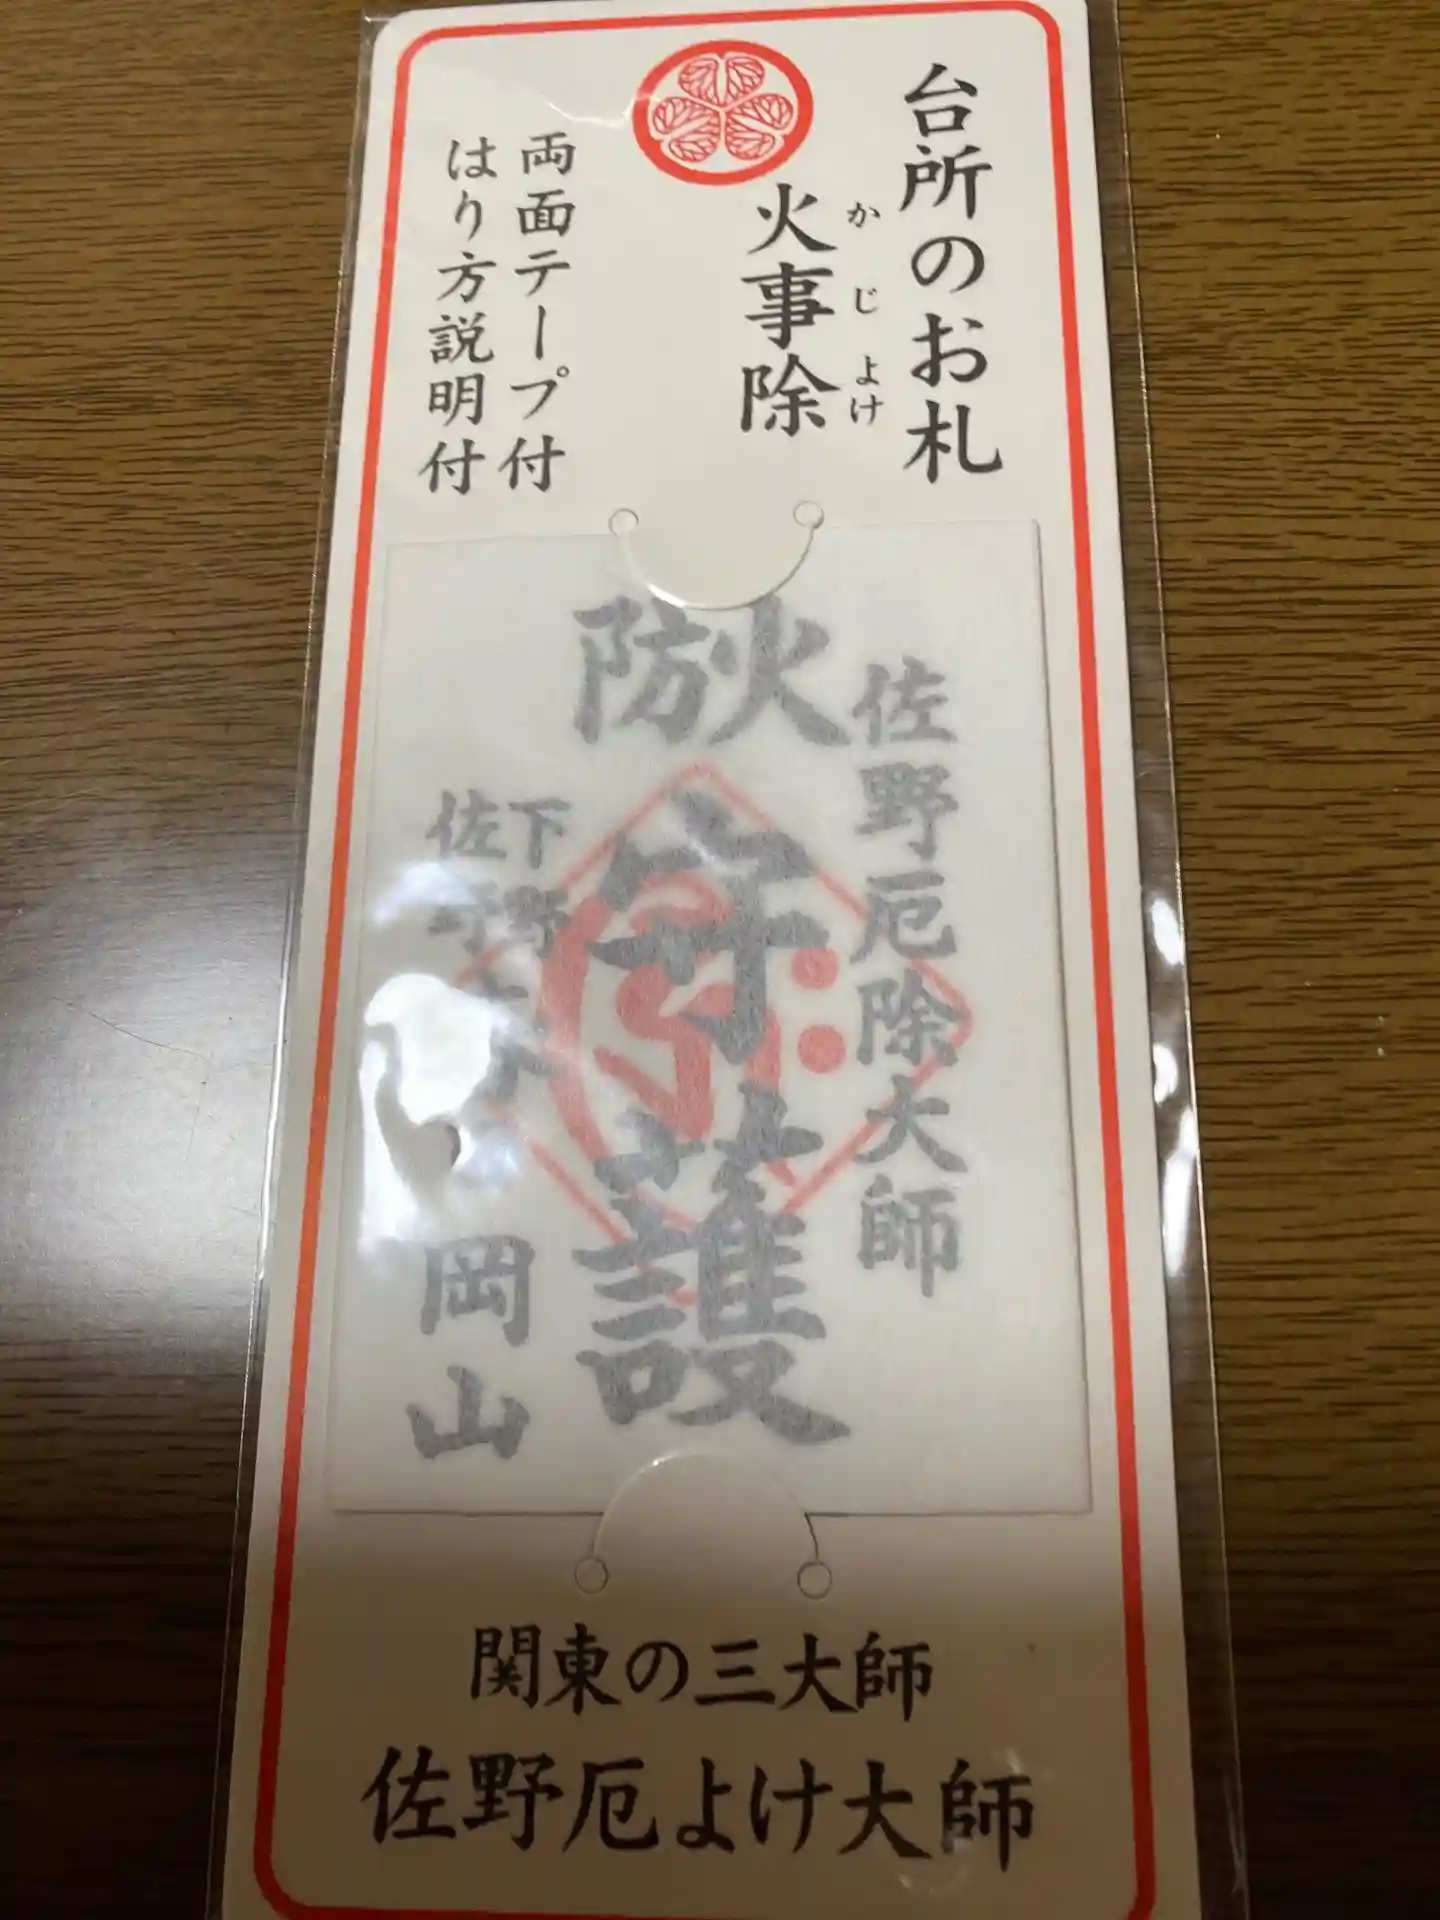 台所のお札
かじよけ
火事除
両面テープ付
はり方説明付
佐野厄除大師
防火
守護
岡山
関東の三大師
佐野厄よけ大師